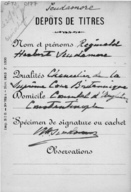 Scudamore
DÉPÔTS DE TITRES
Nom et prénoms Réginald
Herbert Scudamore
Qualités Chancelier de la
Suprême Cour Britannique
Domicile Consulat d'Angleterre
Constantinople
Spécimen de signature ou cachet
Observations